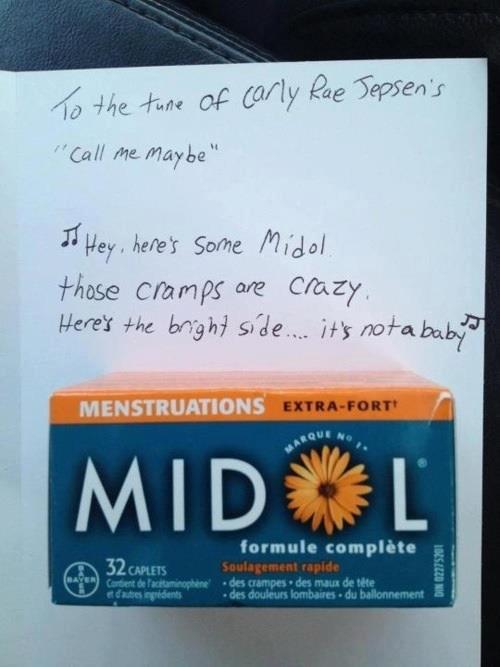 To the tune of Carly Rae Jepsen's
"Call me Maybe"
♫ Hey, here's some Midol.
those cramps are crazy.
Here's the bright side.... it's not a baby ♫
MENSTRUATIONS EXTRA-FORT†
MARQUE No 1*
MIDOL®
formule complète
32 CAPLETS
Soulagement rapide
BAYER
BAYER
Contient de l'acétaminophène
et d'autres ingrédients
• des crampes • des maux de tête
• des douleurs lombaires • du ballonnement
DIN 02275201